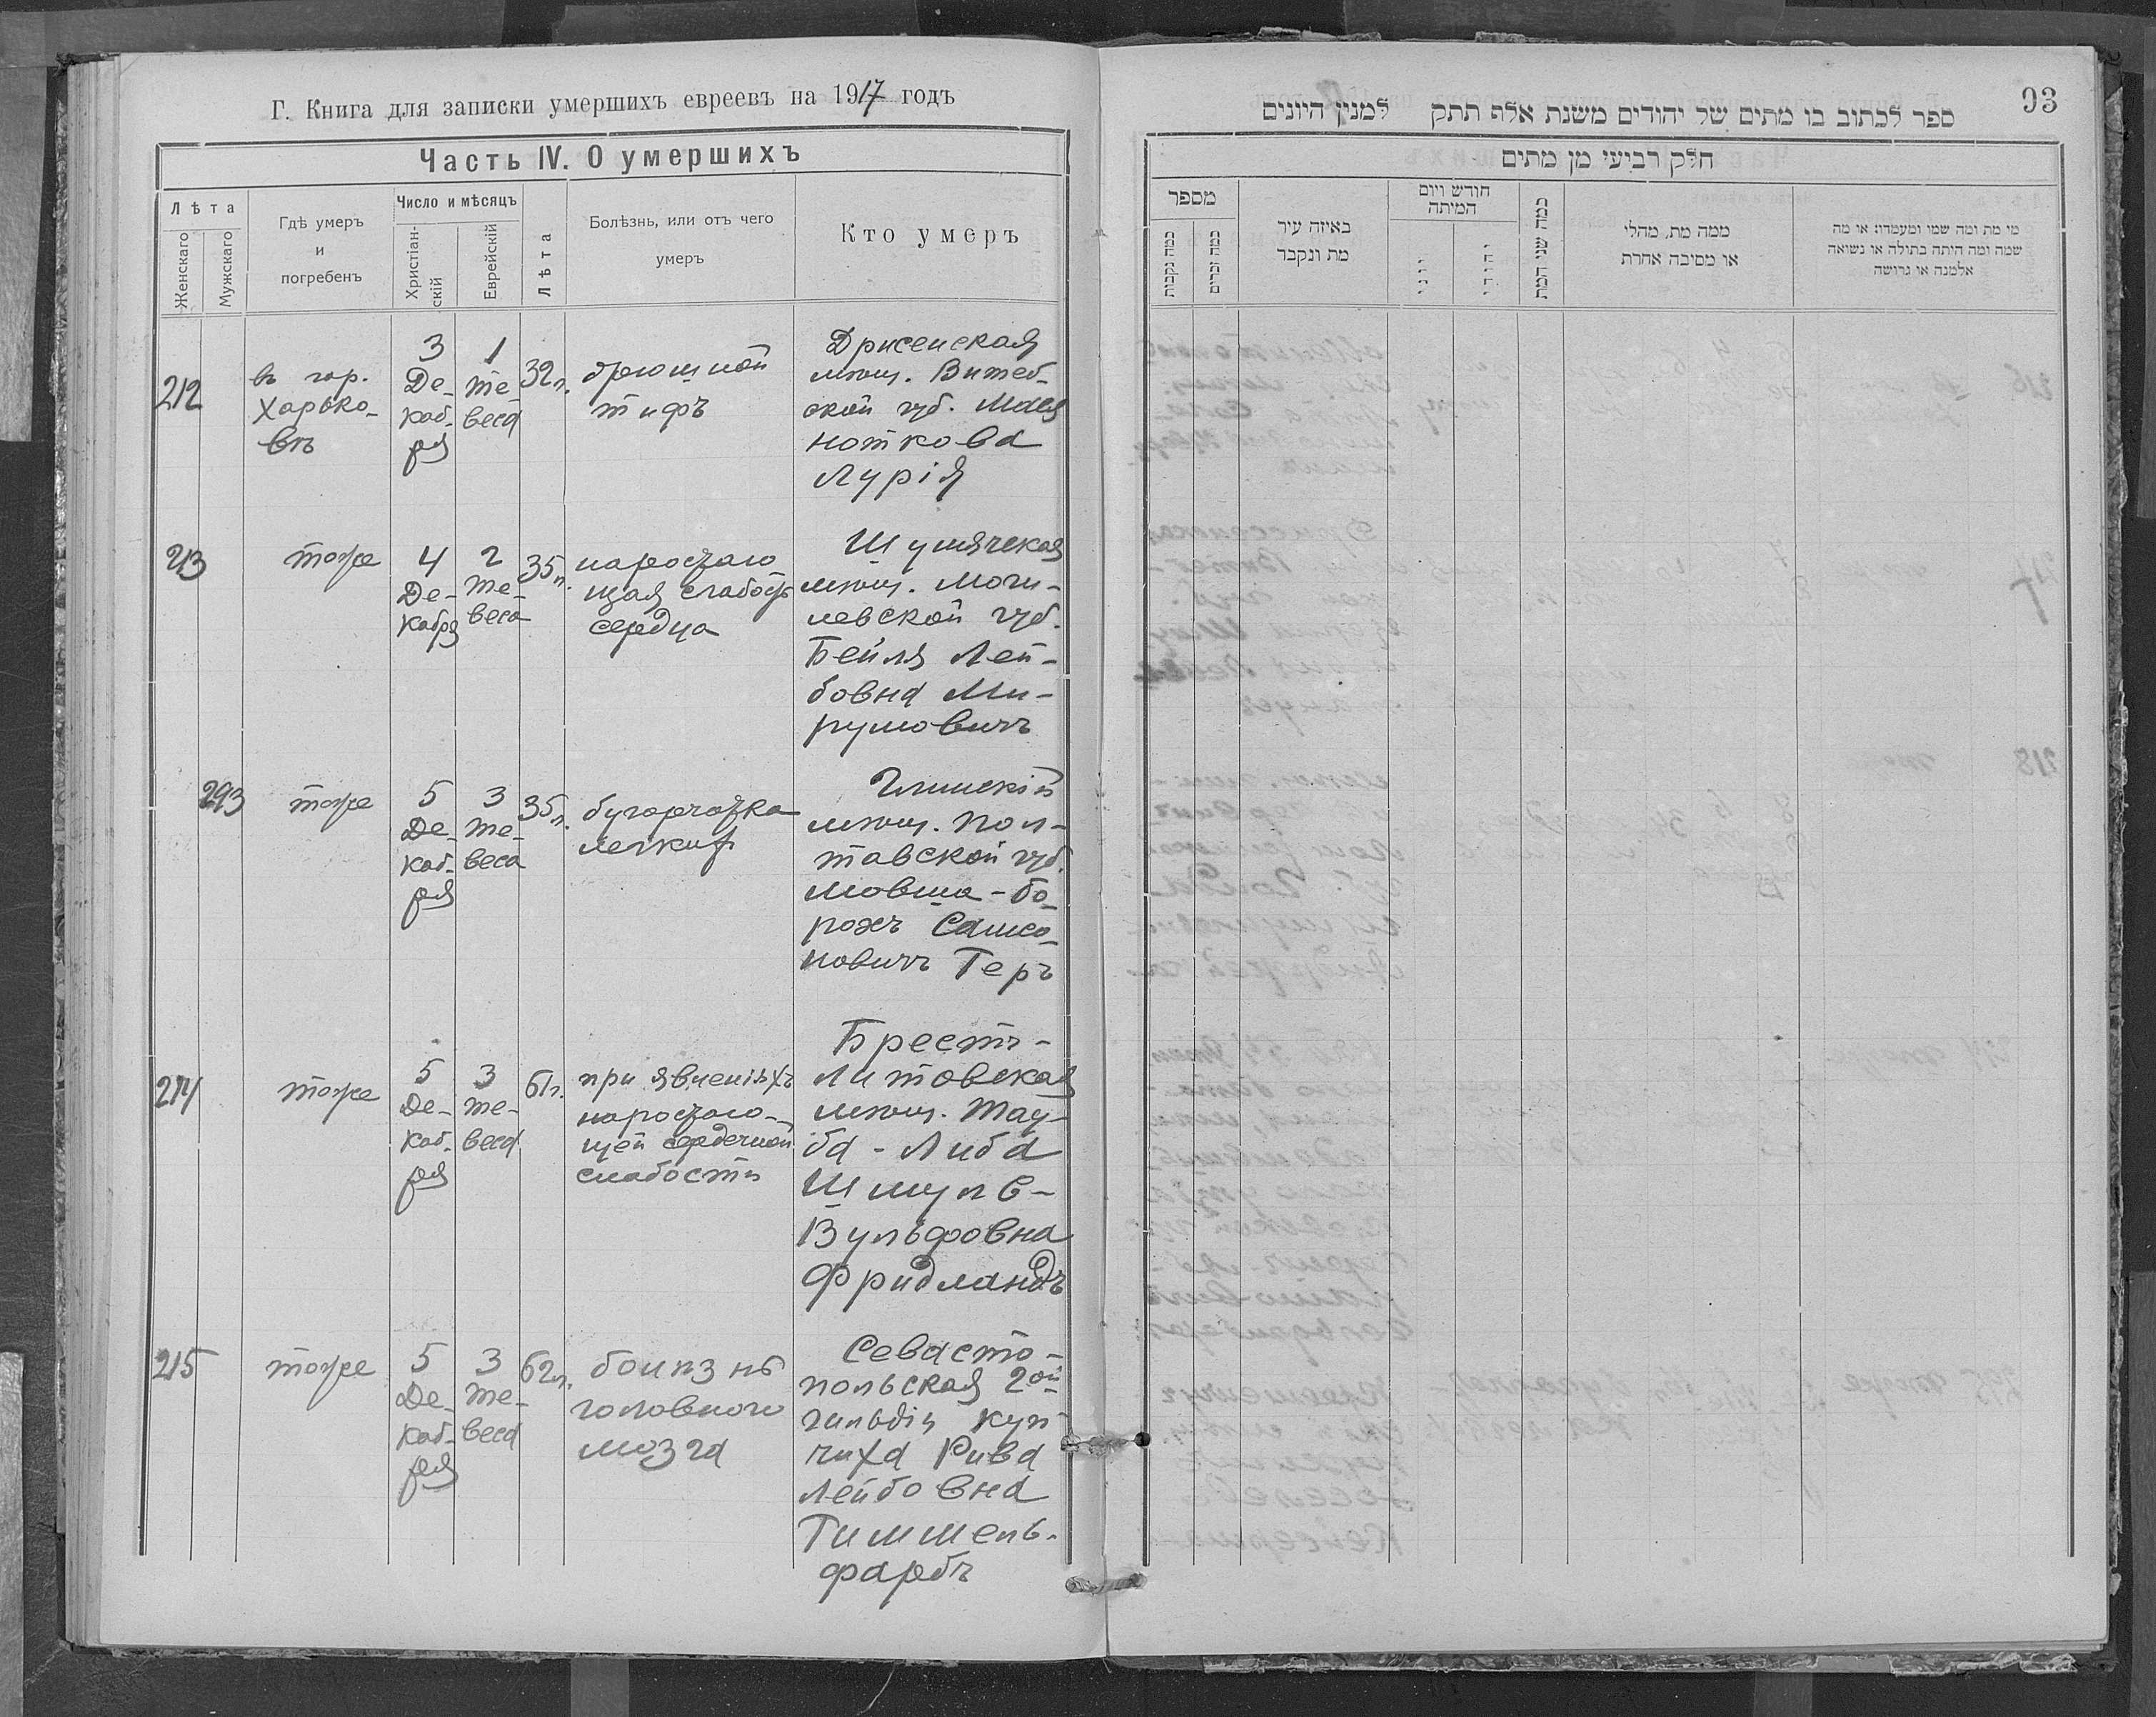 Г. Книга для записки умершихъ евреевъ на 1917 годъ
Часть IV. О умершихъ
Лѣта
Женскаго
Мужскаго
Гдѣ умеръ
и
погребенъ
Число и мѣсяцъ
Христіан-
скій
Еврейскій
Лѣта
Болѣзнь, или отъ чего
умеръ
Кто умеръ
212
въ гор.
Харько-
вѣ
3
Де-
каб-
ря
1
Те-
веса
32 л.
брюшной
тифъ
Дрисенская
мѣщ. Витеб-
ской губ. Мася
Ноткова
Лурія
213
тоже
4
Де-
кабря
2
Те-
веса
35 л.
наростаю
щая слабость
сердца
Шумячская
мѣщ. Моги-
левской губ.
Бейля Лей-
бовна Ми-
румовичъ
293
тоже
5
Де-
каб-
ря
3
Те-
веса
35 л.
бугорчатка
легкихъ
Глинскій
мѣщ. Пол-
тавской губ.
Мовша-Бо-
рохъ Самсо-
новичъ Геръ
214
тоже
5
Де-
каб-
ря
3
Те-
веса
61 г.
при явленіяхъ
наростаю-
щей сердечной
слабости
Брестъ-
Литовская
мѣщ. Тау-
ба-Либа
Шмуль-
Вульфовна
Фридландъ
215
тоже
5
Де-
каб-
ря
3
Те-
веса
62 л.
болѣзнь
головного
мозга
Севасто-
польская 2ой
гильдіи куп-
чиха Рива
Лейбовна
Гиммель-
фарбъ
93
ספר לכתוב בו מתים של יהודים משנת אלף תתק למנין היונים
חלק רביעי מן מתים
מספר
כמה נקבות
כמה זכרים
באיזה עיר
מת ונקבר
חודש ויום
המיתה
יוני
יהודי
כמה שני המת
ממה מת, מהלי
או מסיבה אחרת
מי מת ומה שמו ומעמדו: או מה
שמה ומה היתה בתולה או נשואה
אלמנה או גרושה